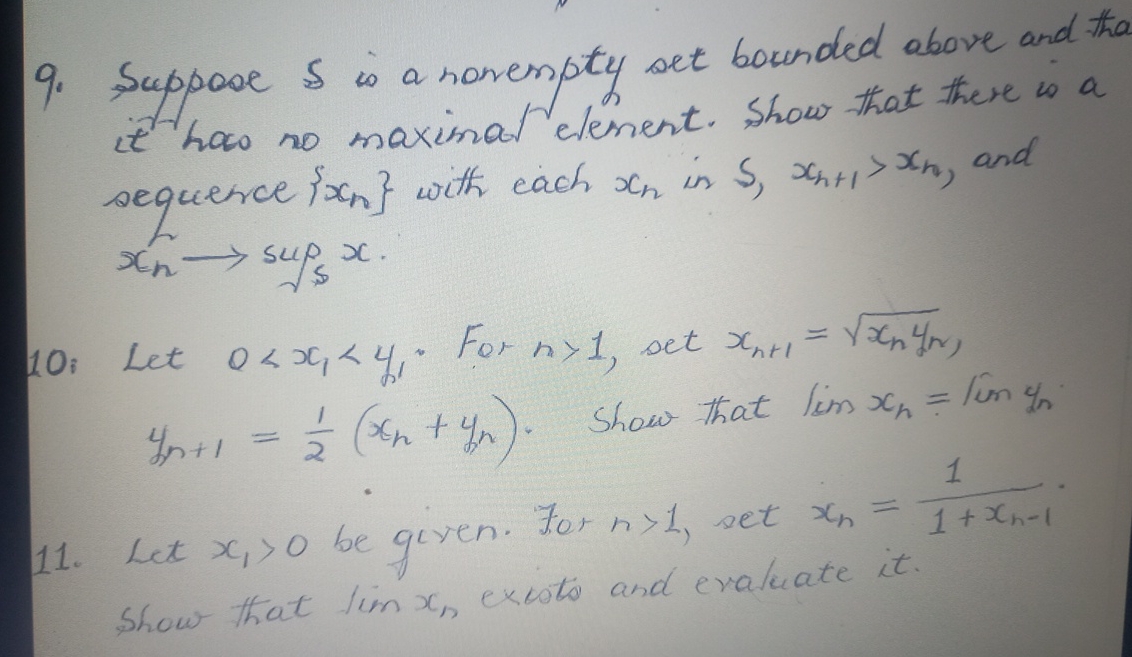 9. Suppose S is a nonempty set bounded above and tha
it has no maximal element. Show that there is a
sequence {xₙ} with each xₙ in S, xₙ₊₁ > xₙ, and
xₙ → sup_S x.
10: Let 0 < x₁ < y₁. For n > 1, set xₙ₊₁ = √xₙyₙ,
yₙ₊₁ = 1/2 (xₙ + yₙ). Show that lim xₙ = lim yₙ.
11. Let x₁ > 0 be given. For n > 1, set xₙ = 1/(1 + xₙ₋₁).
Show that lim xₙ exists and evaluate it.